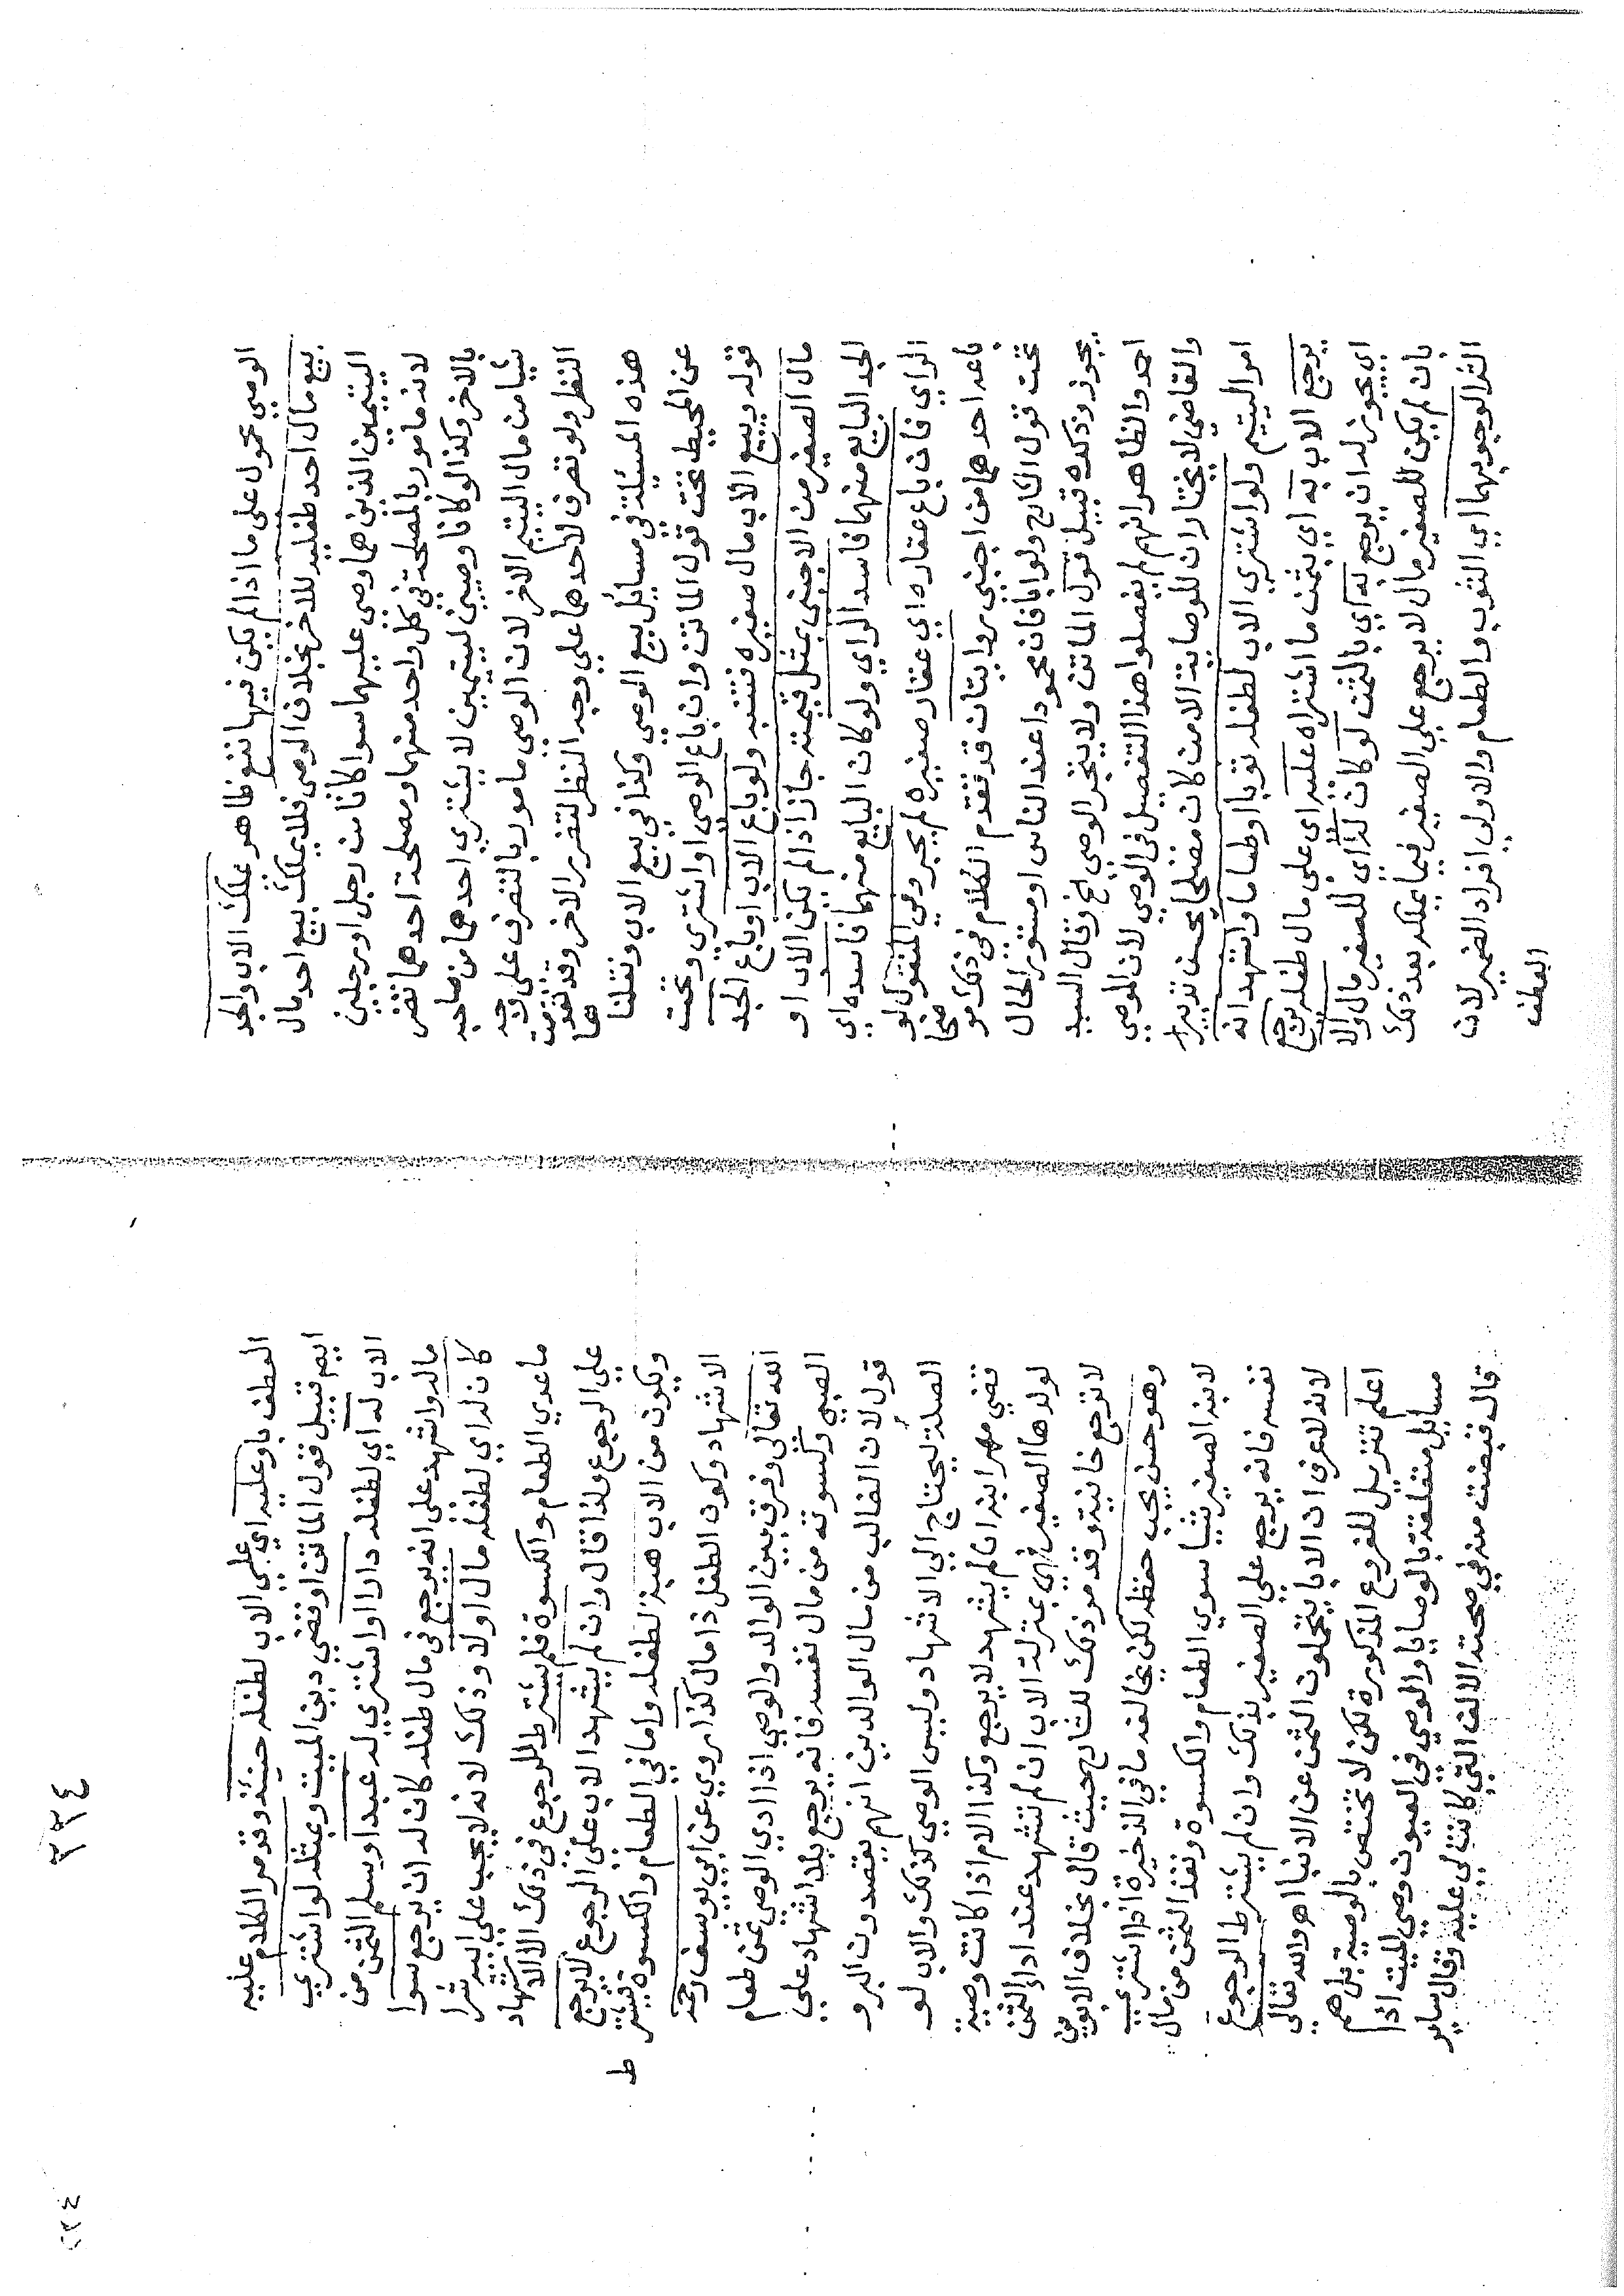 الوصي محمول على ما اذا لم يكن فيها نفع ظاهر يملك الاب والجد
بيع مال احد طفليه للاخر بخلاف الوصي فلا يملك بيع احد مال
اليتيمين الذين هما وصي عليهما سوا كانا من رجل او رجلين
لانه مامور بالمصلحة في كل واحد منهما ومصلحة احدهما تضر
بالاخر وكذا لو كانا وصيين ليتيمين لا يشتري احدهما من صاحبه
شيا من مال اليتيم الاخر لان الوصي مامور بالتصرف على وجه
النظر ولو تصرف لاحدهما على وجه النظر لتضرر الاخر وقد تقدمت
هذه المسئلة في مسايل بيع الوصي وكذا في بيع الاب ونقلناها
عن المحيط تحت قول الماتن وان باع الوصي او اشتري وتحت
قوله وبيع الاب مال صغيره فتنبه ولو باع الاب او باع الجد
مال الصغير من الاجنبي بمثل قيمته جاز اذا لم يكن الاب او
الجد البايع منهما فاسد الراي ولو كان البايع منهما فاسده اي
الراي فان باع عقاره اي عقار صغيره لم يجز وفي المنقول لو
باعه احدهما من اجنبي روايتان قد تقدم الكلام في ذلك موضحا
تحت قول الشارح ولو ابا فان محمودا عند الناس او مستور الحال
يجوز وذكده قبيل قول الماتن ولا يتجر الوصي الخ وقال السيد
احمد والظاهر انهم لم يفصلوا هذا التفصيل في الوصي لان الموصي
والقاضي لا يختاران للوصاية الا من كان مصلحا يحسن تدبير
امور اليتيم ولو اشتري الاب لطفله ثوبا او طعاما واشهد انه
يرجع الاب به اي بثمن ما اشتراه عليه اي على مال طفله يرجع
اي يجوز له ان يرجع له اي بالثمن لو كان له اي للصغير مال والا
بان لم يكن للصغير مال لا يرجع على الصغير فيما يملكه بعد ذلك
الشرا لوجوبهما اي الثوب والطعام والاولي افراد الضمير لان
العطف
٢٣٤
العطف باو عليه اي على الاب لطفله حينئذ وقد مر الكلام عليه
ايضا قبيل قول الماتن او قضي دين الميت وعثله لو اشتري
الاب له اي لطفله دارا او اشتري له عبدا ويسلم الثمن من
ماله واشهد على انه يرجع في مال طفله كان له ان يرجع سوا
كان له اي لطفله مال او لا وذلك لانه لا يجب على ابيه شرا
ماعدي الطعام والكسوة فلم يشترط للرجوع في ذلك الا الاشهاد
على الرجوع ولذا قال وان لم يشهد الاب على الرجوع لا يرجع
ويكون من الاب هبة لطفله واما في الطعام والكسوة فيشترط
الاشهاد وكون الطفل ذا مال كذا روي عن ابي يوسف رحمه
الله تعالى وفرق بين الوالد والوصي اذا ادي الوصي ثمن طعام
الصبي وكسوته من مال نفسه فانه يرجع بلا اشهاد على
قول لان الغالب من مال الوالدين انهم يقصدون البر و
الصلة ليحتاج الي الاشهاد وليس الوصي كذلك والاب لو
قضي مهر ابنه ان لم يشهد لا يرجع وكذا الام اذا كانت وصية
لولدها الصغير فهي بمنزلة الاب ان لم تشهد عند اداء الثمن
لا ترجع خانية وقد مر ذلك للشارح حيث قال بخلاف الابوين
وهو حسن يجب حفظه لكن يخالفه ما في الذخيرة اذا اشتري
لابنه الصغير شيا سوي الطعام والكسوة ونقد الثمن من مال
نفسه فانه يرجع على الصغير بذلك وان لم يشترط الرجوع
لانه لا عرف ان الابا يتحملون الثمن عن الابنا اهر والله تعالى
اعلم تنزيل للفروع المذكورة لكن لا تختص بالوصية بل هي
مسايل متعلقة بالوصايا والوصي في العيون وصي الميت اذا
قال قبضت منه في صحته الالف التي كانت لي عليه وقال ساير